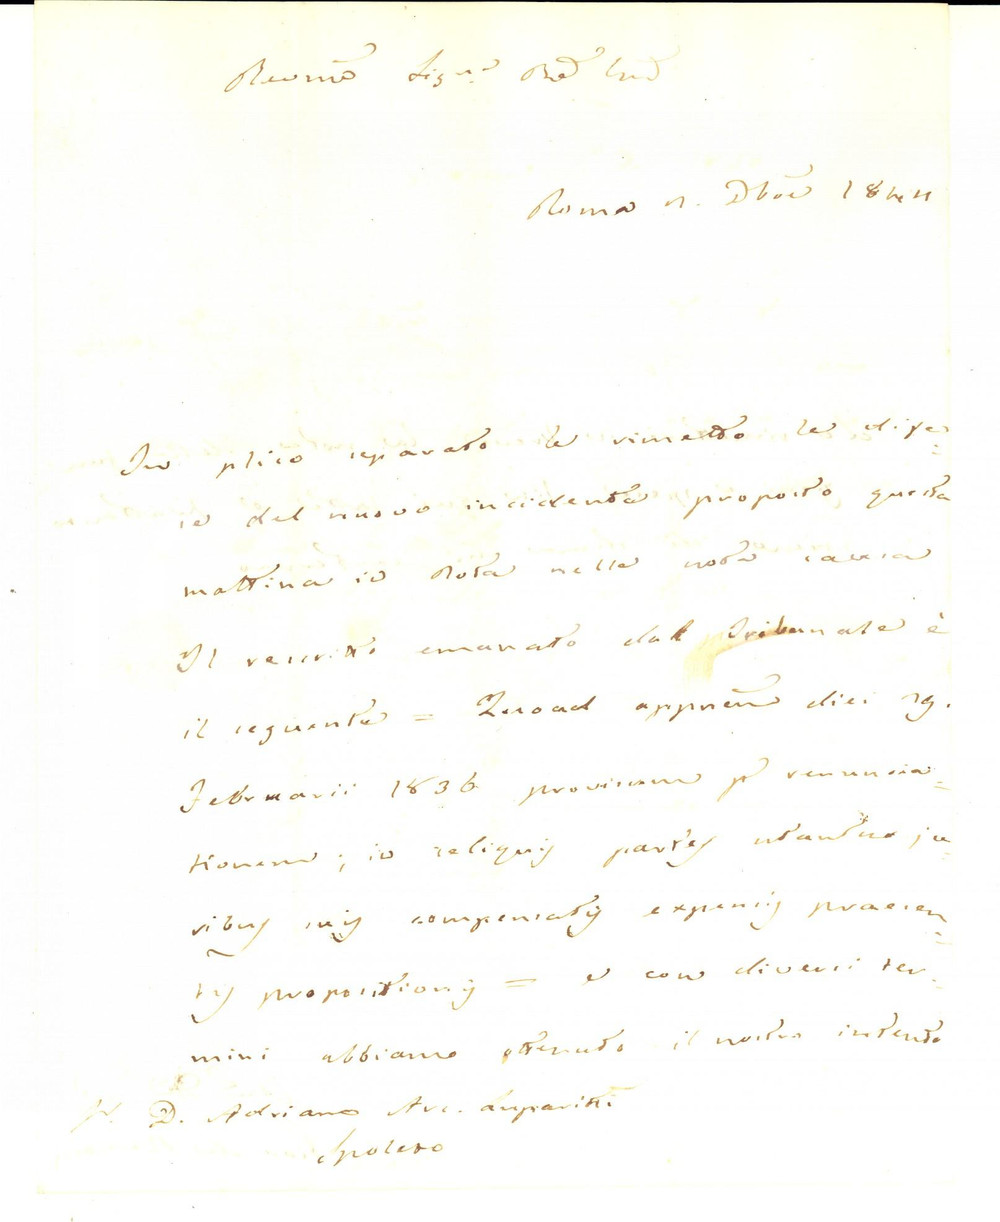 Revmo Sigr
Roma Dbre 1844
In plico separato le rimetto le dife=
se del nuovo incidente proposto questa
mattina in Rota nella nota causa
Il rescritto emanato dal Tribunale è
il seguente = Quoad diei 29.
Februarii 1836 provisum p renuncia=
tionem; in reliquis partes utantur ju=
ribus suis compensatis expensis praesen=
tis propositionis = e con diversi ter=
mini abbiamo ottenuto il nostro intento
D. Adriano Arc.
Spoleto